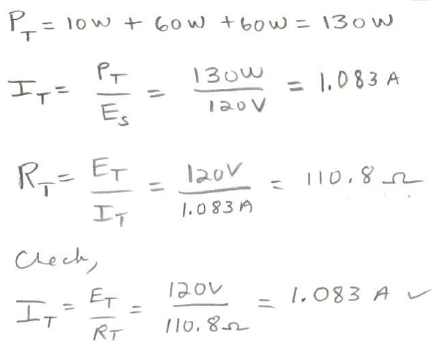 P_T = 10W + 60W + 60W = 130W
I_T = P_T / E_S = 130W / 120V = 1.083 A
R_T = E_T / I_T = 120V / 1.083A = 110.8 Ω
Check,
I_T = E_T / R_T = 120V / 110.8Ω = 1.083 A ✓